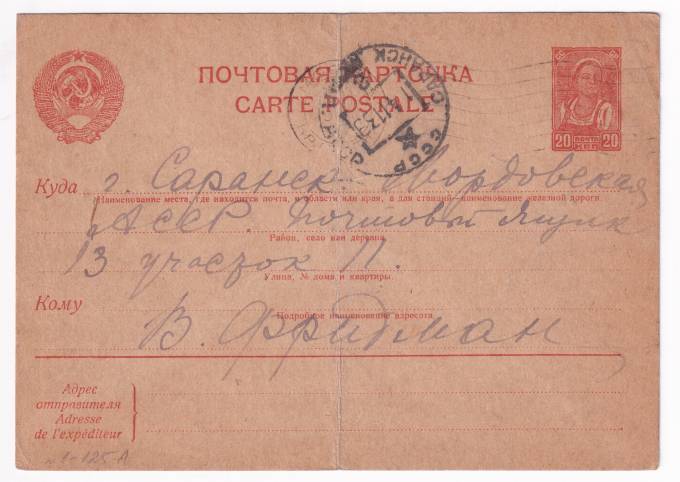 ПОЧТОВАЯ КАРТОЧКА
CARTE POSTALE
САРАНСК
СССР
20 ПОЧТА 20
КОП.
Куда г. Саранск Мордовская
Наименование места, где находится почта, и области или края, а для станций наименование железной дороги
АССР. Почтовый ящик
Район, село или деревня
13 участок 11.
Улица, № дома и квартиры
Кому
Подробное наименование адресата
В. Фридман
Адрес
отправителя
Adresse
de l'expéditeur